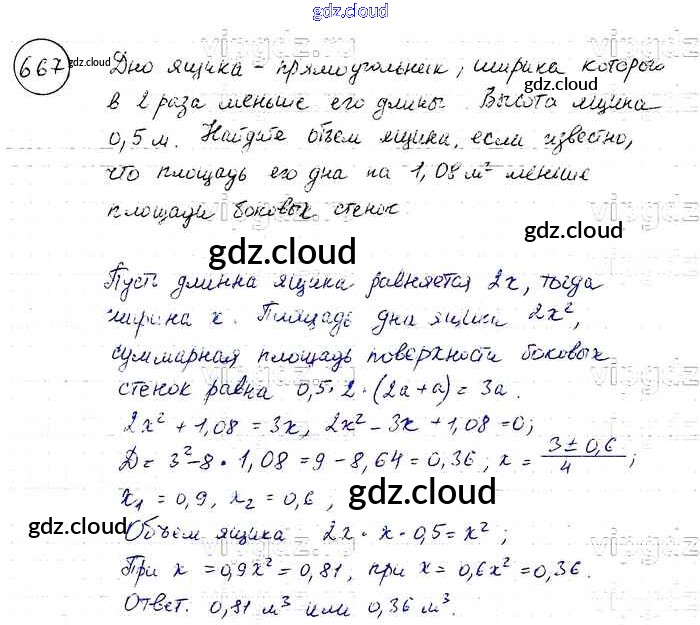 gdz.cloud
667 gdz.cloud Дно ящика – прямоугольник, ширина которого
gdz.cloud
в 2 раза меньше его длины. Высота ящика
0,5 м. Найдите объем ящика, если известно,
что площадь его дна на 1,08 м² меньше
площади боковых стенок
gdz.cloud
gdz.cloud
Пусть длинна ящика равняется 2x, тогда
ширина x. Площадь дна ящика 2x²,
суммарная площадь поверхности боковых
стенок равна 0,5 · 2 · (2a+a) = 3a.
gdz.cloud
2x² + 1,08 = 3x, 2x² – 3x + 1,08 = 0;
D = 3² – 8 · 1,08 = 9 – 8,64 = 0,36; x = (3 ± 0,6)/4;
x₁ = 0,9, x₂ = 0,6,
gdz.cloud
gdz.cloud
Объем ящика 2x · x · 0,5 = x²;
gdz.cloud
При x = 0,9x² = 0,81, при x = 0,6x² = 0,36.
Ответ. 0,81 м³ или 0,36 м³.